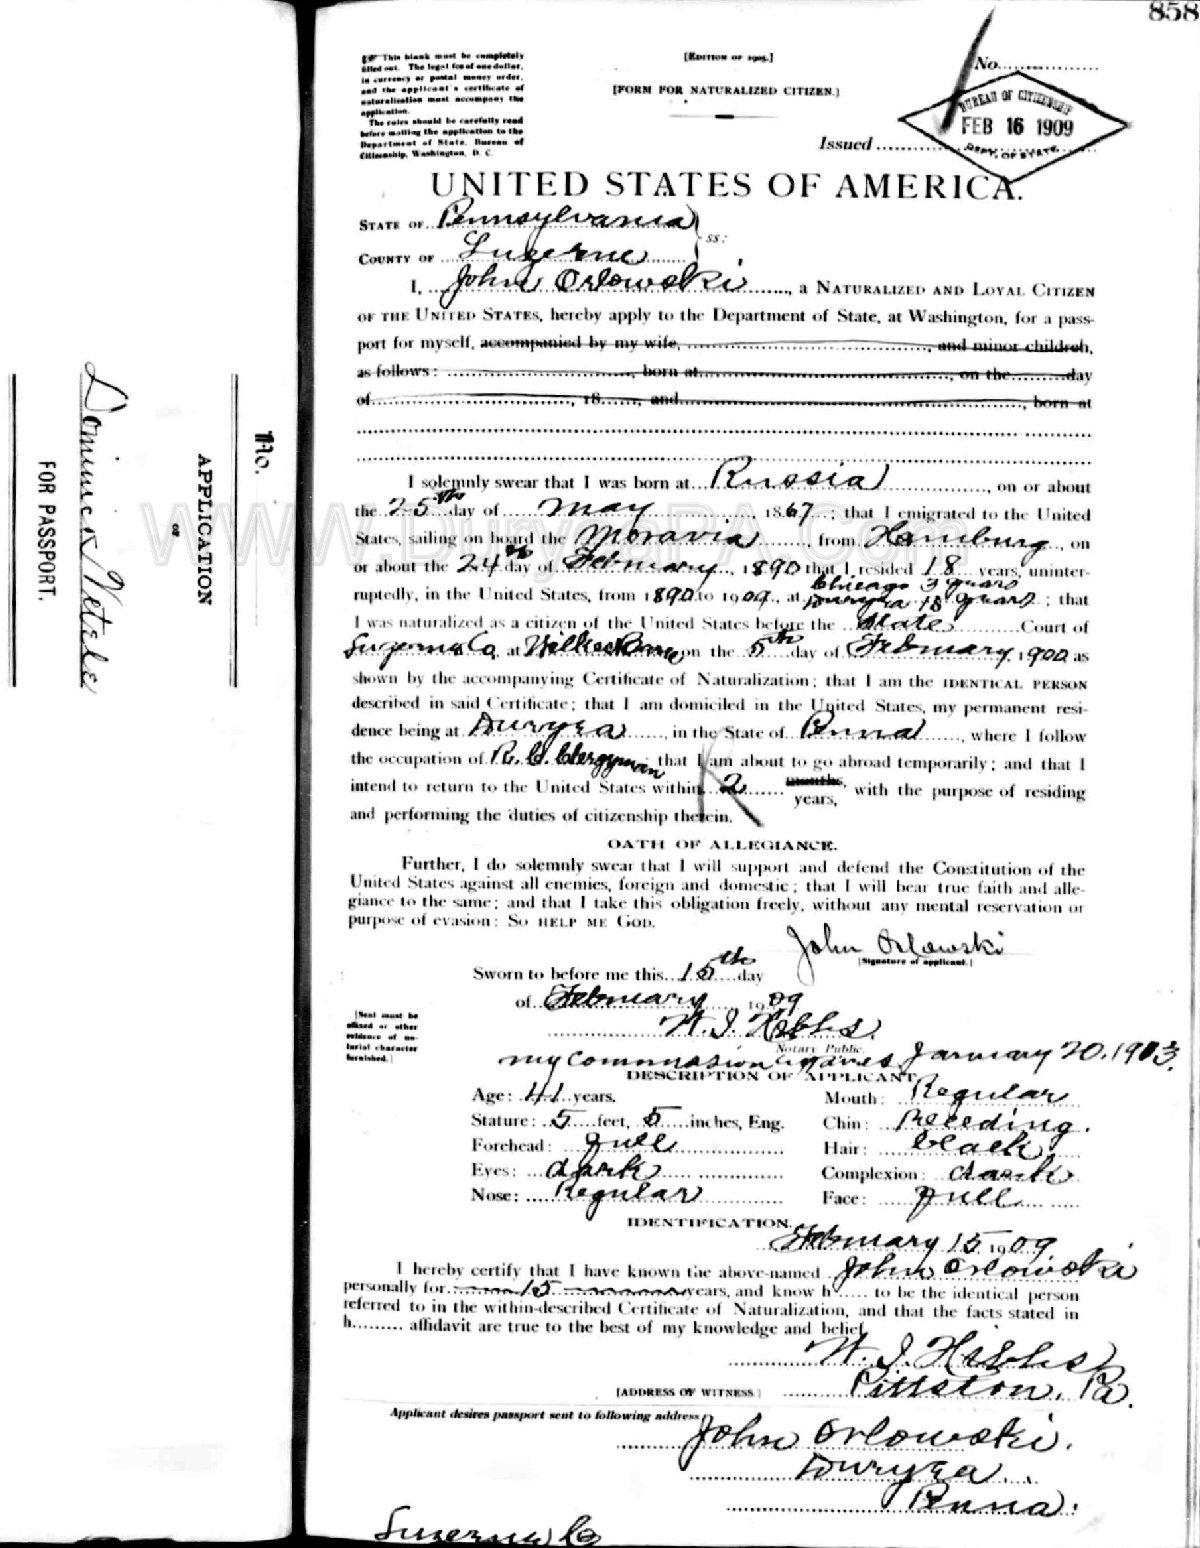 858
☞ This blank must be completely
filled out. The legal fee of one dollar,
in currency or postal money order,
and the applicant's certificate of
naturalization must accompany the
application.
The rules should be carefully read
before mailing the application to the
Department of State, Bureau of
Citizenship, Washington, D. C.
[EDITION OF 1905.]
[FORM FOR NATURALIZED CITIZEN.]
No.
Issued
BUREAU OF CITIZENSHIP
FEB 16 1909
DEPT. OF STATE.
UNITED STATES OF AMERICA.
STATE OF Pennsylvania
ss:
COUNTY OF Luzerne
I, John Orlowski, a NATURALIZED AND LOYAL CITIZEN
OF THE UNITED STATES, hereby apply to the Department of State, at Washington, for a pass-
port for myself, accompanied by my wife, , and minor children,
as follows: , born at , on the day
of , 18 , and , born at
I solemnly swear that I was born at Russia, on or about
the 25th day of May, 1867; that I emigrated to the United
States, sailing on board the Moravia, from Hamburg, on
or about the 24th day of February, 1890 that I resided 18 years, uninter-
Chicago 3 years
ruptedly, in the United States, from 1890 to 1909, at Duryea 15 years; that
I was naturalized as a citizen of the United States before the State Court of
Luzerne Co, at Wilkes Barre on the 5th day of February, 1900 as
shown by the accompanying Certificate of Naturalization; that I am the IDENTICAL PERSON
described in said Certificate; that I am domiciled in the United States, my permanent resi-
dence being at Duryea, in the State of Penna, where I follow
the occupation of R. C. Clergyman; that I am about to go abroad temporarily; and that I
intend to return to the United States within 2 months years, with the purpose of residing
and performing the duties of citizenship therein.
OATH OF ALLEGIANCE.
Further, I do solemnly swear that I will support and defend the Constitution of the
United States against all enemies, foreign and domestic; that I will bear true faith and alle-
giance to the same; and that I take this obligation freely, without any mental reservation or
purpose of evasion: SO HELP ME GOD.
John Orlowski
[Signature of applicant.]
Sworn to before me this 15th day
of February 1909
[Seal must be
affixed or other
evidence of no-
tarial character
furnished.]
W. J. Hibbs.
Notary Public.
my commission expires January 20. 1913.
DESCRIPTION OF APPLICANT
Age: 41 years. Mouth: Regular
Stature: 5 feet, 5 inches, Eng. Chin: Receding.
Forehead: full Hair: black
Eyes: dark Complexion: dark
Nose: Regular Face: full
IDENTIFICATION.
February 15 1909
I hereby certify that I have known the above-named John Orlowski
personally for 15 years, and know h to be the identical person
referred to in the within-described Certificate of Naturalization, and that the facts stated in
h affidavit are true to the best of my knowledge and belief
W. J. Hibbs
[ADDRESS OF WITNESS.] Pittston, Pa.
Applicant desires passport sent to following address
John Orlowski.
Duryea
Penna.
Luzerne Co
No.
APPLICATION
OR
FOR PASSPORT.
Dominick Vitale
www.DuryeaPA.Com